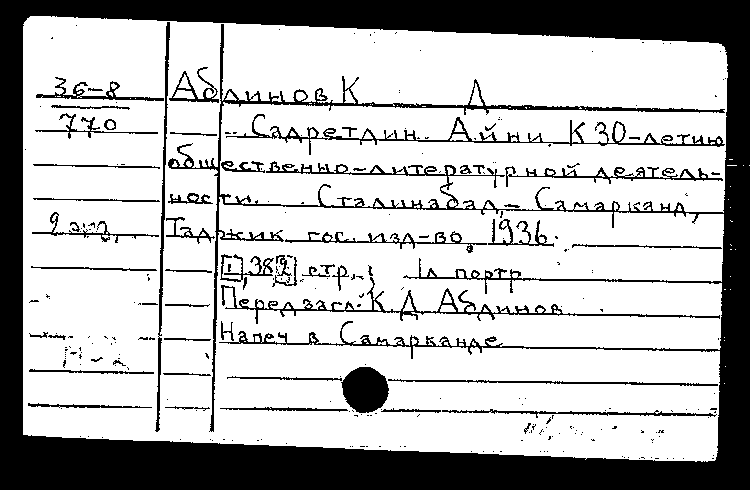 36-8 Абдинов, К Д
770 Садретдин Айни. К 30-летию
общественно-литературной деятель-
ности. Сталинабад, - Самарканд,
2 экз. Таджик. гос. изд-во, 1936.
[1], 38, [2] стр.; 1л портр
Перед загл: К Д Абдинов
Напеч в Самарканде
Н-2